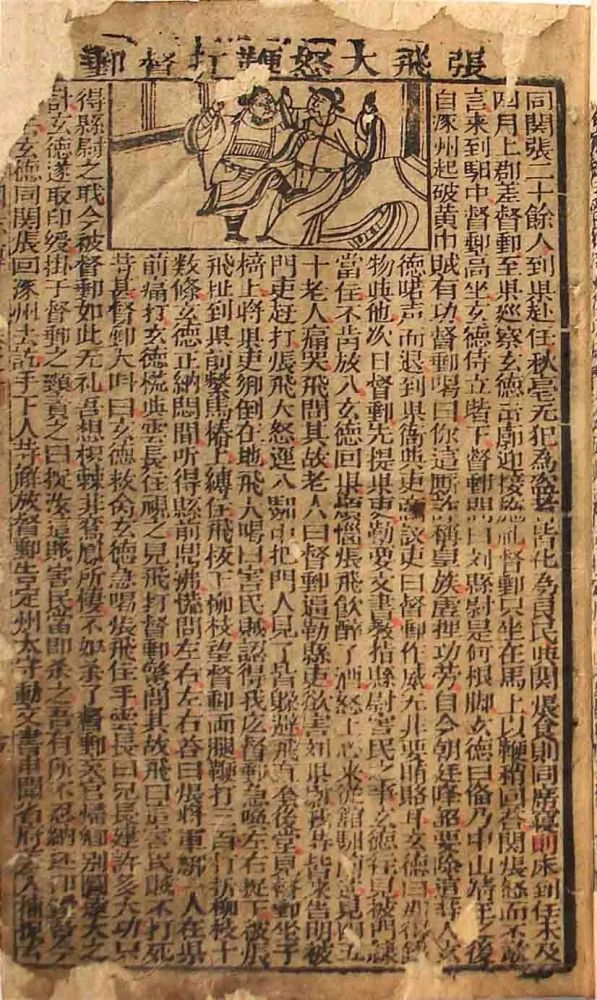 張飛大怒鞭打督郵
同関張二十餘人到県赴任秋毫无犯為盗者皆化為良民與関張食則同席寝則同床到任未及
四月上郡差督郵至県廵察玄德出郭迎接施礼督郵只坐在馬上以鞭稍回荅関張怒而不敢
言来到馹中督郵高坐玄德侍立堦下督郵問曰刘縣尉是何根脚玄德曰俻乃中山靖王之後
自涿州起破黄巾賊有功督郵喝曰你這厮詐稱皇族虛捏功劳自今朝廷降詔要除這等人玄
德喏声而退到県衙與吏商議吏曰督郵作威无非要賄賂耳玄德曰那得錢
物與他次日督郵先提県吏勒要文書教指縣尉害民之事玄德往見被門隸
當住不肯放入玄德回県懊惱張飛飲醉了酒怒上心来從舘馹前過見四五
十老人痛哭飛問其故老人曰督郵逼勒縣吏欲害刘県尉等皆来告明被
門吏赶打張飛大怒逕入馹中把門人見了皆躲避飛直奔後堂見督郵坐于
椅上將県吏綁倒在地飛大喝曰害民賊認得我庅督郵急喚左右捉下被張
飛扯到県前繫馬樁上縛住飛扳下柳枝望督郵両腿鞭打二百打折柳枝十
数條玄德正納悶間听得縣前喧沸慌問左右左右荅曰張將軍綁一人在県
前痛打玄德慌與雲長往視之見飛打督郵驚問其故飛曰這害民賊不打死
等甚督郵大叫曰玄德救命玄德急喝張飛住手雲長曰兄長建許多大功只
得縣尉之职今被督郵如此无礼吾想枳棘非鸞鳳所棲不如杀了督郵弃官帰鄉別圖遠大之
計玄德遂取印綬掛于督郵之頸責之曰捉汝這賊害民當即杀之吾有所不忍納还印綬
玄德同関張回涿州去訖手下人等解放督郵告定州太守動文書申聞省府差人捕捉